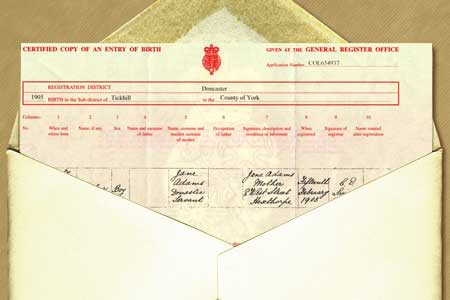 CERTIFIED COPY OF AN ENTRY OF BIRTH
GIVEN AT THE GENERAL REGISTER OFFICE
Application Number COL654937
REGISTRATION DISTRICT Doncaster
1905 BIRTH in the Sub-district of Tickhill in the County of York
Columns:- 1 2 3 4 5 6 7 8 9 10
No. When and where born Name, if any Sex Name and surname of father Name, surname and maiden surname of mother Occupation of father Signature, description and residence of informant When registered Signature of registrar Name entered after registration
Boy
Jane Adams Domestic Servant
Jane Adams Mother 8 West Street Hexthorpe
Fifteenth February 1905